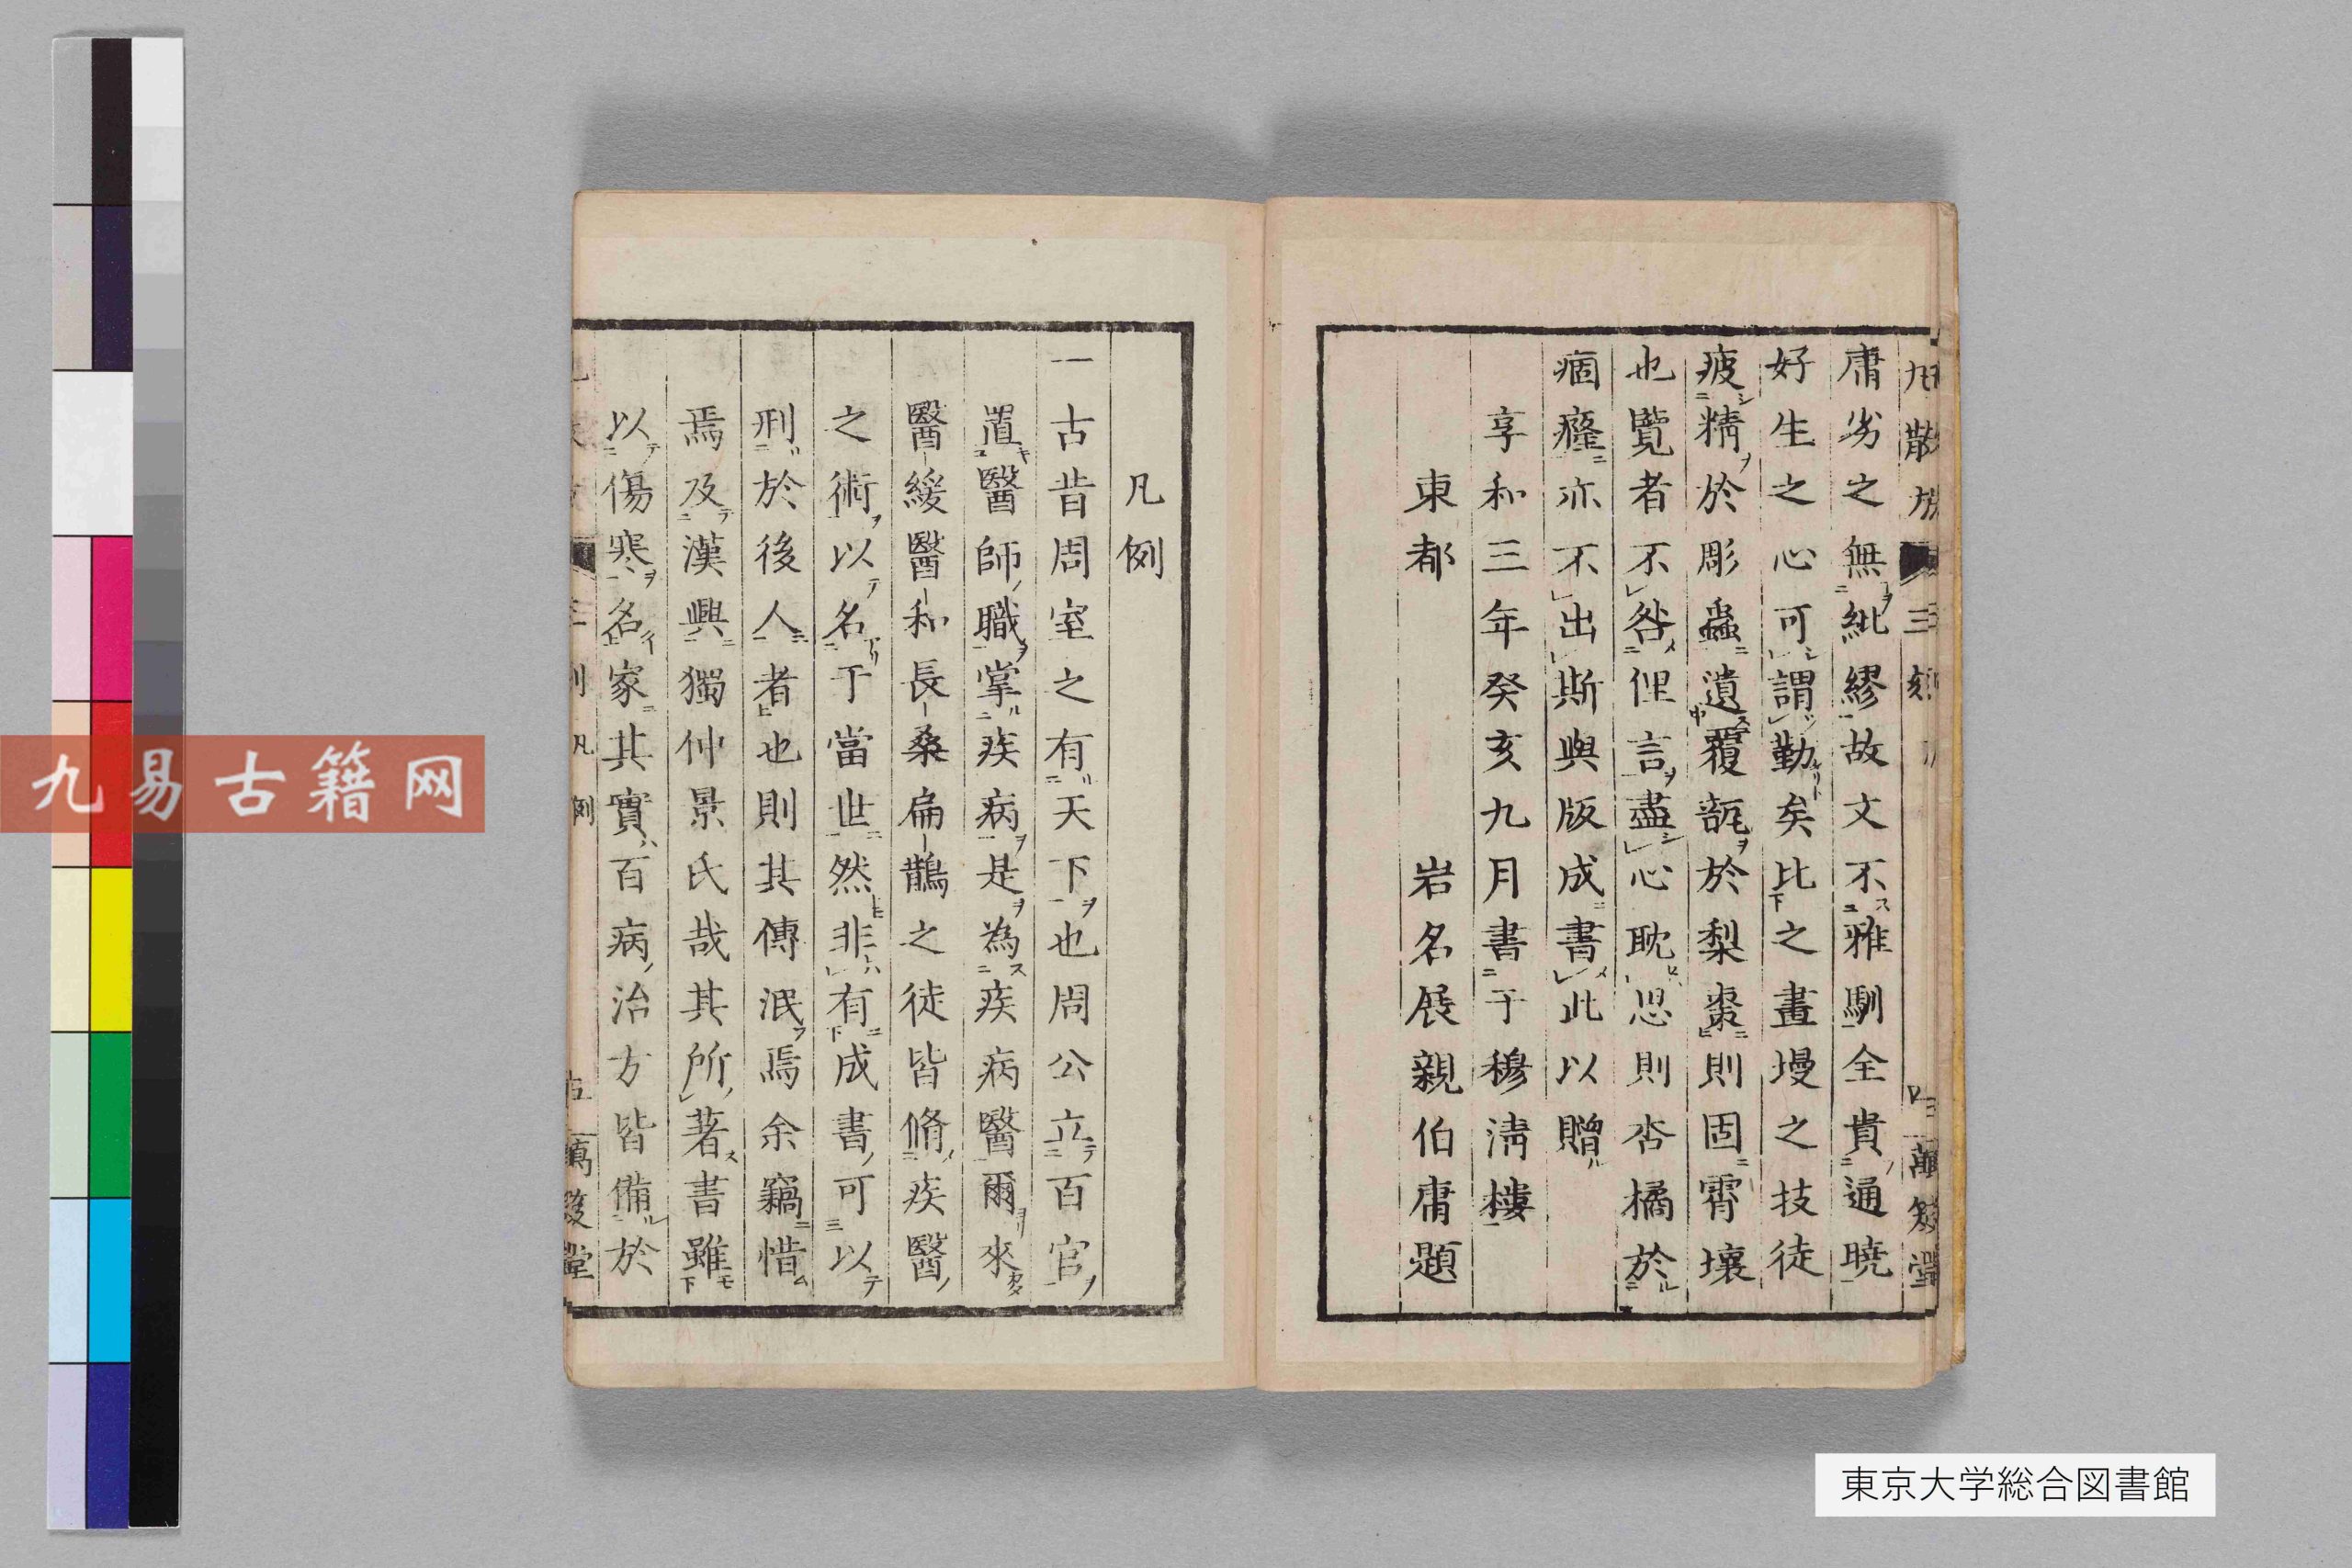 庸劣之無紕繆故文不雅馴全貴通曉
好生之心可謂勤矣比之畫墁之技徒
疲精於彫蟲遺覆瓿於梨棗則固霄壤
也覽者不咎俚言盡心耽思則杏橘於
痼癃亦不出斯與版成書此以贈
享和三年癸亥九月書于穆淸樓
東都 岩名展親伯庸題
凡例
一古昔周室之有天下也周公立百官
置醫師職掌疾病是為疾病醫爾來
醫緩醫和長桑扁鵲之徒皆脩疾醫
之術以名于當世然非有成書可以
刑於後人者也則其傳泯焉余竊惜
焉及漢興獨仲景氏哉其所著書雖
以傷寒名家其實百病治方皆備於
九易古籍网
東京大学総合図書館